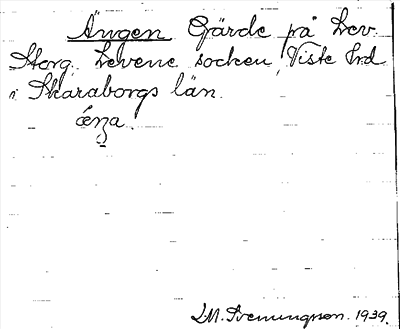 Ängen Gärde på Lev.
Storg. Levene socken, Viste hd
i Skaraborgs län.
ænа.
1939.